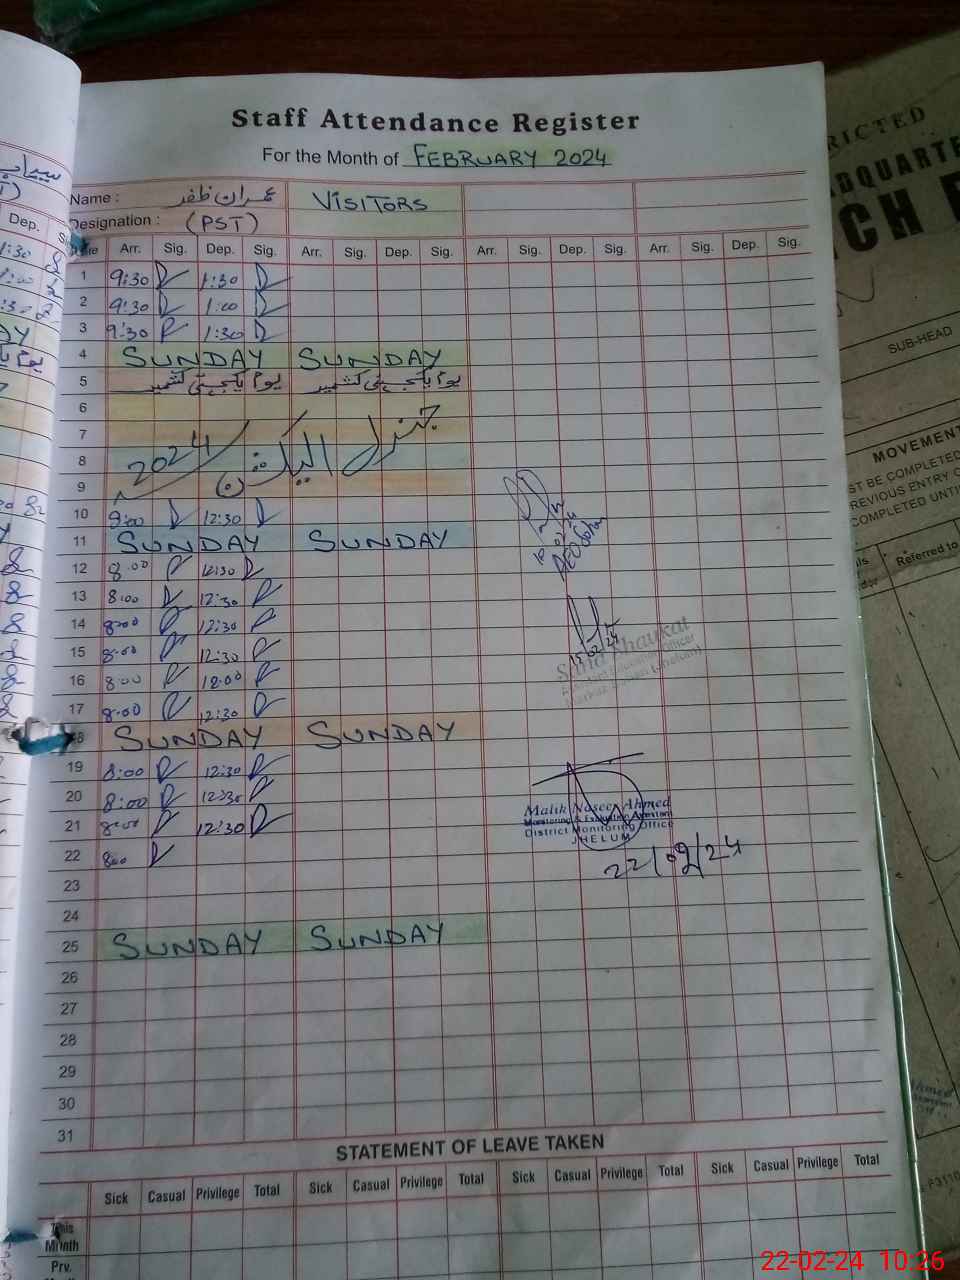 Staff Attendance Register
For the Month of FEBRUARY 2024
Name : عمران ظفر VISITORS
Designation : (PST)
Arr. Sig. Dep. Sig. Arr. Sig. Dep. Sig. Arr. Sig. Dep. Sig. Arr. Sig. Dep. Sig.
1 9:30 1:30
2 9:30 1:00
3 9:30 1:30
4 SUNDAY SUNDAY
5 یوم یکجہتی کشمیر یوم یکجہتی کشمیر
6
7
8 جنرل الیکشن 2024
9
10 9:00 12:30
11 SUNDAY SUNDAY
12 8:00 12:30
13 8:00 12:30
14 8:00 12:30
15 8:00 12:30
16 8:00 12:00
17 8:00 12:30
18 SUNDAY SUNDAY
19 8:00 12:30
20 8:00 12:30
21 8:00 12:30
22 8:00
23
24
25 SUNDAY SUNDAY
26
27
28
29
30
31
15/02/24
Shaukat
Malik Naseer Ahmed
Monitoring & Evaluation Assistant
District Monitoring Office
JHELUM
22/02/24
STATEMENT OF LEAVE TAKEN
Sick Casual Privilege Total Sick Casual Privilege Total Sick Casual Privilege Total Sick Casual Privilege Total
This Month
Prv.
Dep.
1:30
RICTED
ADQUARTE
CH
SUB-HEAD
MOVEMENT
ST BE COMPLETED
REVIOUS ENTRY
COMPLETED UNTI
Referred to
22-02-24 10:26